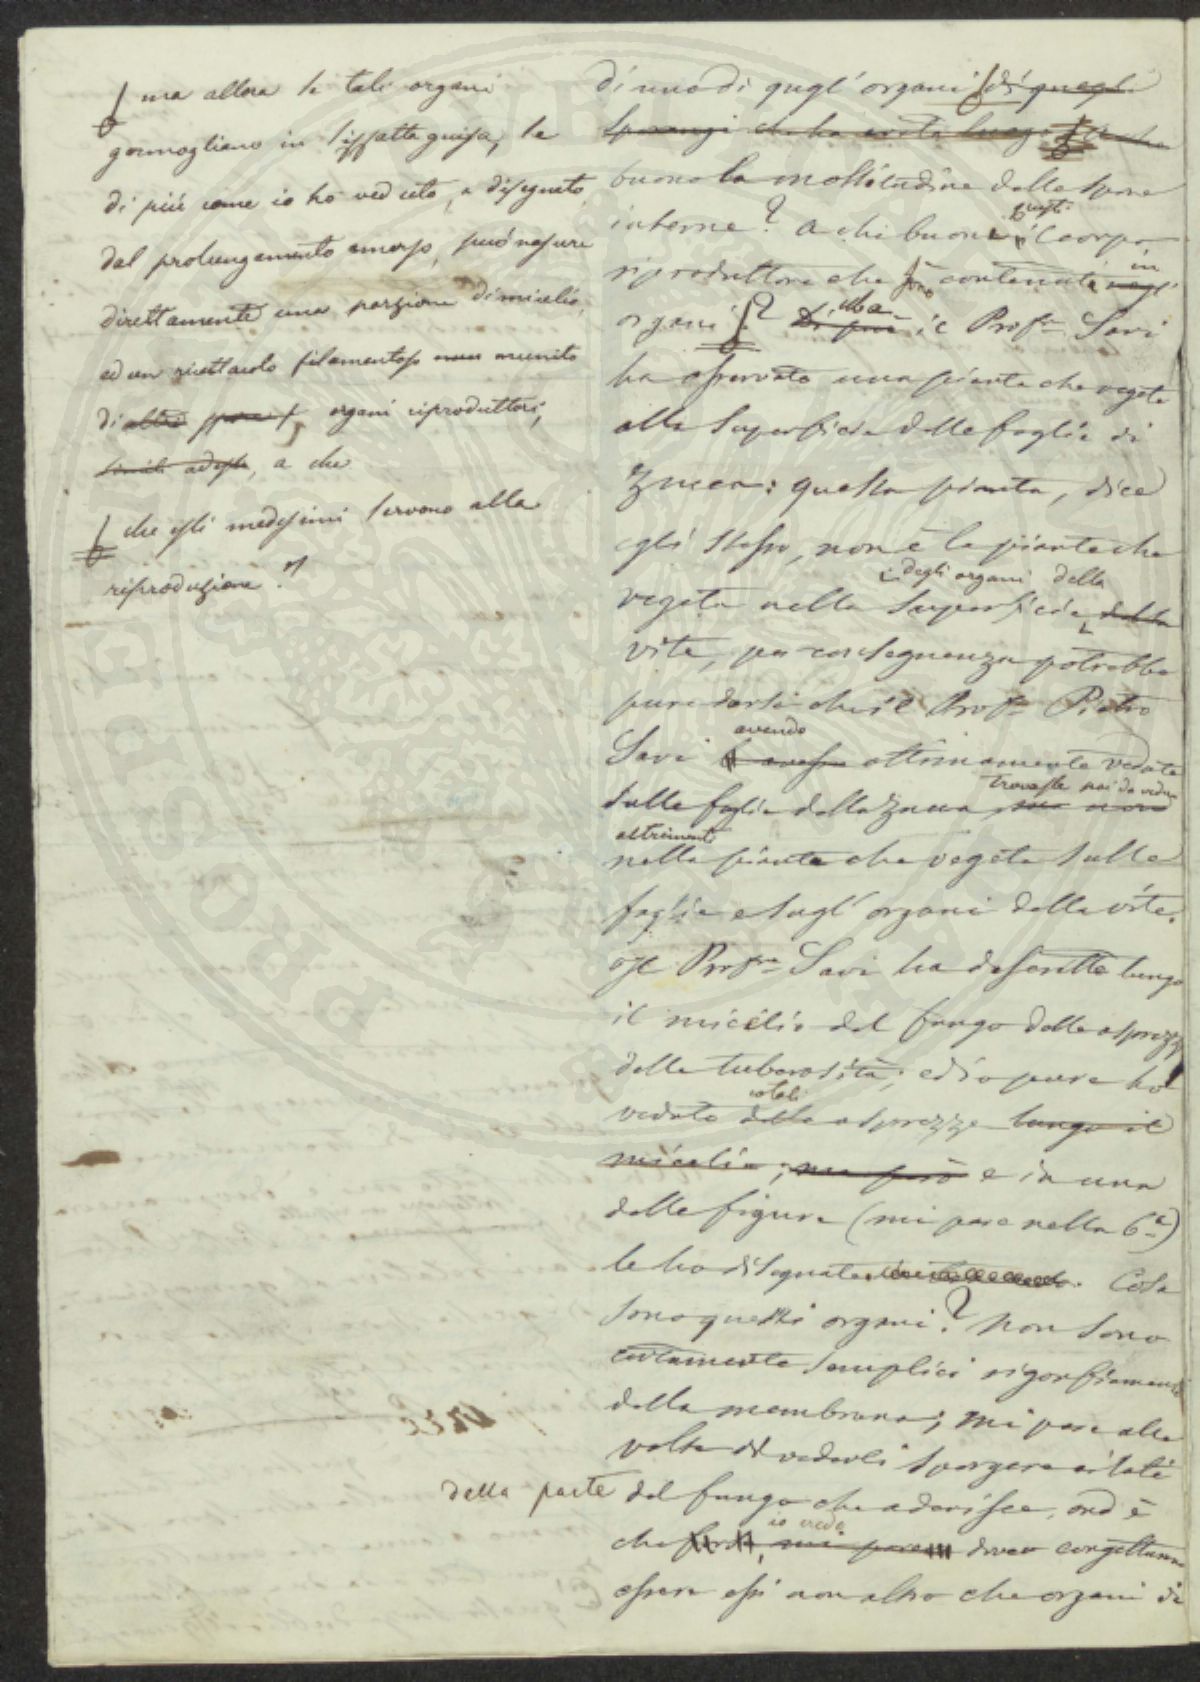 ma allora se tali organi
germogliano in siffatta guisa, se
di più come io ho veduto, e disegnato,
dal prolungamento emerso, può nascere
direttamente una porzione di micelio,
ed un ricettacolo filamentoso munito
di altri organi riproduttori,
a che
che essi medesimi servono alla
riproduzione?
di uno di quegl'organi di quegli
sporangi che ha avuto luogo
buono la moltitudine delle spore
interne? A che buoni questi corpi
riproduttori che sono contenuti in
organi? Di più ma il Prof. Savi
ha osservato una pianta che vegeta
alla superficie delle foglie di
Zucca: questa pianta, dice
egli stesso, non è la pianta che
degli organi della
vegeta nella superficie della
vite, per conseguenza potrebbe
pure darsi che il Prof. Pietro
avendo
Savi avesse ottimamente veduto
trovasse poi da vedere
sulle foglie della Zucca
altrimenti
nella pianta che vegeta sulle
foglie e sugl'organi della vite.
Il Prof. Savi ha descritte lungo
il micelio del fungo delle asprezze
delle tuberosità; ed io pure ho
cotali
vedute delle asprezze lungo il
micelio; ma però e in una
delle figure (mi pare nella 6a)
le ho disegnate. Cosa
sono questi organi? Non sono
certamente semplici rigonfiamenti
della membrana; mi pare alle
volte di vederli sporgere ai lati
della parte del fungo che aderisce, ond'è
io credo
che forse, mi pare devo congetturare
essere essi non altro che organi di